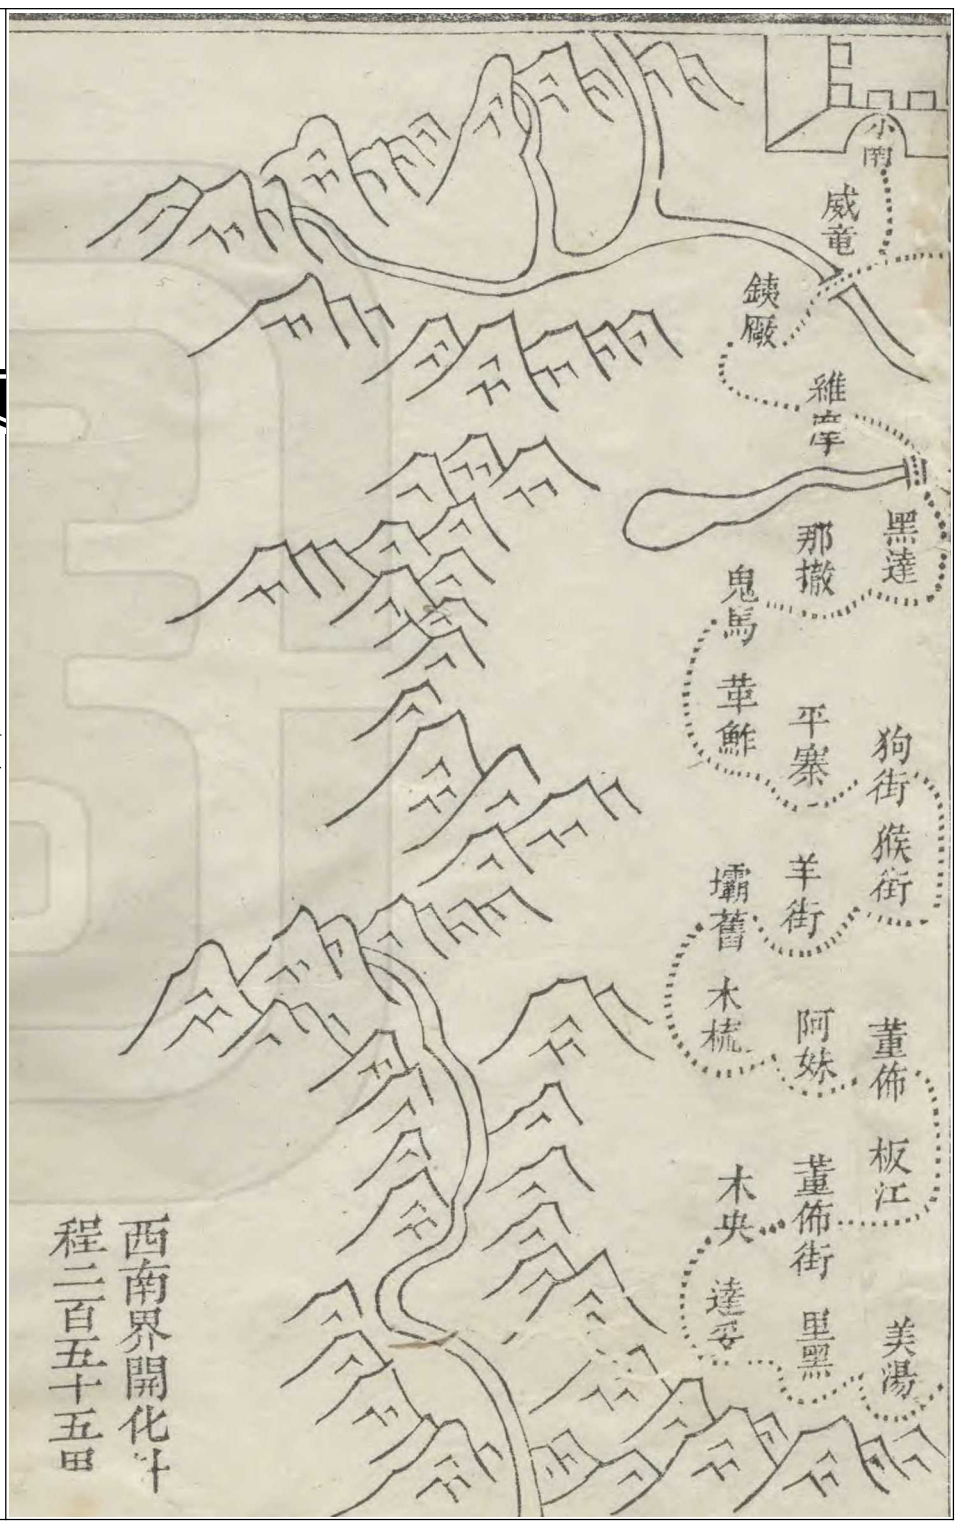 小南
威竜
銕厰
維摩
黑達
那撤
鬼馬
革鮓
平寨
狗街
猴街
羊街
壩舊
木梳
阿妹
董佈
板江
董佈街
木央
達
里黑
美湯
西南界開化
程二百五十五里